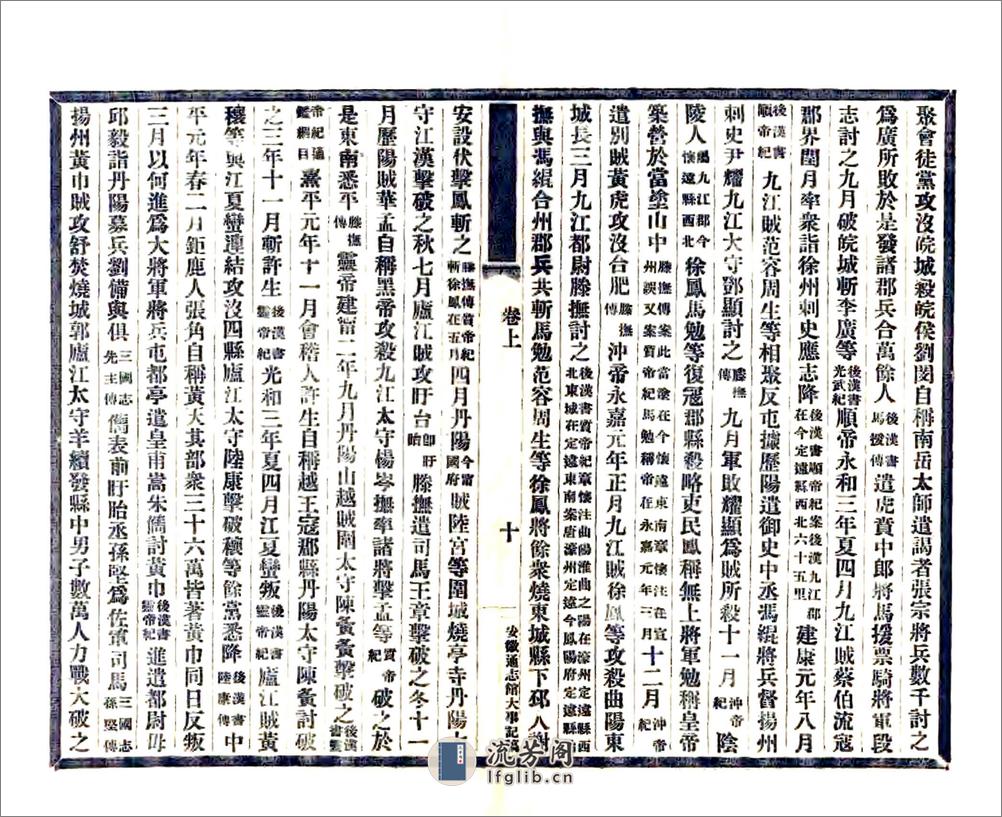 聚會徒黨攻沒皖城殺皖侯劉閔自稱南岳太師遣謁者張宗將兵數千討之
爲廣所敗於是發諸郡兵合萬餘人後漢書馬援傳遣虎賁中郎將馬援票騎將軍段
志討之九月破皖城斬李廣等後漢書光武紀順帝永和三年夏四月九江賊蔡伯流寇
郡界閏月率衆詣徐州刺史應志降後漢書順帝紀案後漢九江郡在今定遠縣西北六十五里建康元年八月
後漢書順帝紀九江賊范容周生等相聚反屯據歷陽遣御史中丞馮緄將兵督揚州
刺史尹耀九江大守鄧顯討之滕撫傳九月軍敗耀顯爲賊所殺十一月沖帝紀陰
陵人屬九江郡今懷遠縣西北徐鳳馬勉等復寇郡縣殺略吏民鳳稱無上將軍勉稱皇帝
築營於當塗山中滕撫傳案此當塗在今懷遠東南章懷注在宣州誤又案質帝紀馬勉稱帝在永嘉元年三月十二月沖帝紀
遣別賊黃虎攻沒合肥滕撫傳沖帝永嘉元年正月九江賊徐鳳等攻殺曲陽東
城長三月九江都尉滕撫討之後漢書質帝紀章懷注曲陽淮曲之陽在濠州定遠縣西北東城在定遠東南案唐濠州定遠今鳳陽府定遠縣
撫與馮緄合州郡兵共斬馬勉范容周生等徐鳳將餘衆燒東城縣下邳人謝
卷上
十
安徽通志館大事記稿
安設伏擊鳳斬之滕撫傳質帝紀斬徐鳳在五月四月丹陽今甯國府賊陸宮等圍城燒亭寺丹陽太
守江漢擊破之秋七月廬江賊攻盱台卽盱眙滕撫遣司馬王章擊破之冬十一
月歷陽賊華孟自稱黑帝攻殺九江太守楊岑撫率諸將擊孟等質帝紀破之於
是東南悉平滕撫傳靈帝建甯二年九月丹陽山越賊圍太守陳夤夤擊破之後漢書靈
帝紀通鑑綱目熹平元年十一月會稽人許生自稱越王寇郡縣丹陽太守陳夤討破
之三年十一月斬許生後漢書靈帝紀光和三年夏四月江夏蠻叛後漢書靈帝紀廬江賊黃
穰等與江夏蠻連結攻沒四縣廬江太守陸康擊破穰等餘黨悉降後漢書陸康傳中
平元年春二月鉅鹿人張角自稱黃天其部衆三十六萬皆著黃巾同日反叛
三月以何進爲大將軍將兵屯都亭遣皇甫嵩朱儁討黃巾後漢書靈帝紀進遣都尉毋
邱毅詣丹陽募兵劉備與俱三國志先主傳儁表前盱眙丞孫堅爲佐軍司馬三國志孫堅傳
揚州黃巾賊攻舒焚燒城郭廬江太守羊續發縣中男子數萬人力戰大破之
流芳阁
lfglib.cn